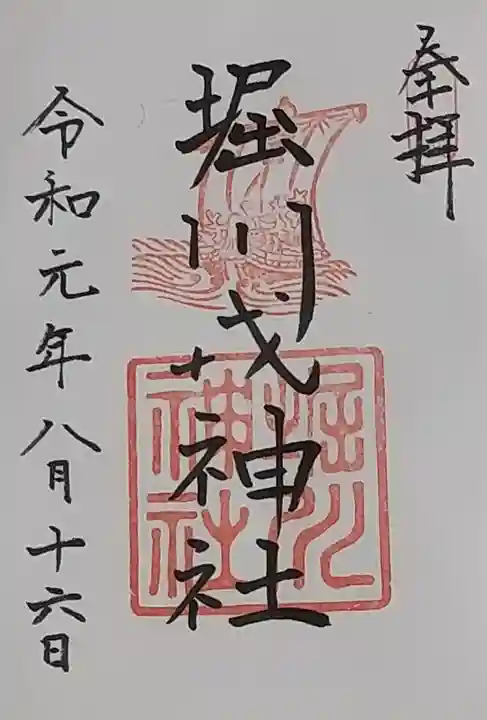 奉拝
堀川戎神社
堀川
神社
令和元年八月十六日